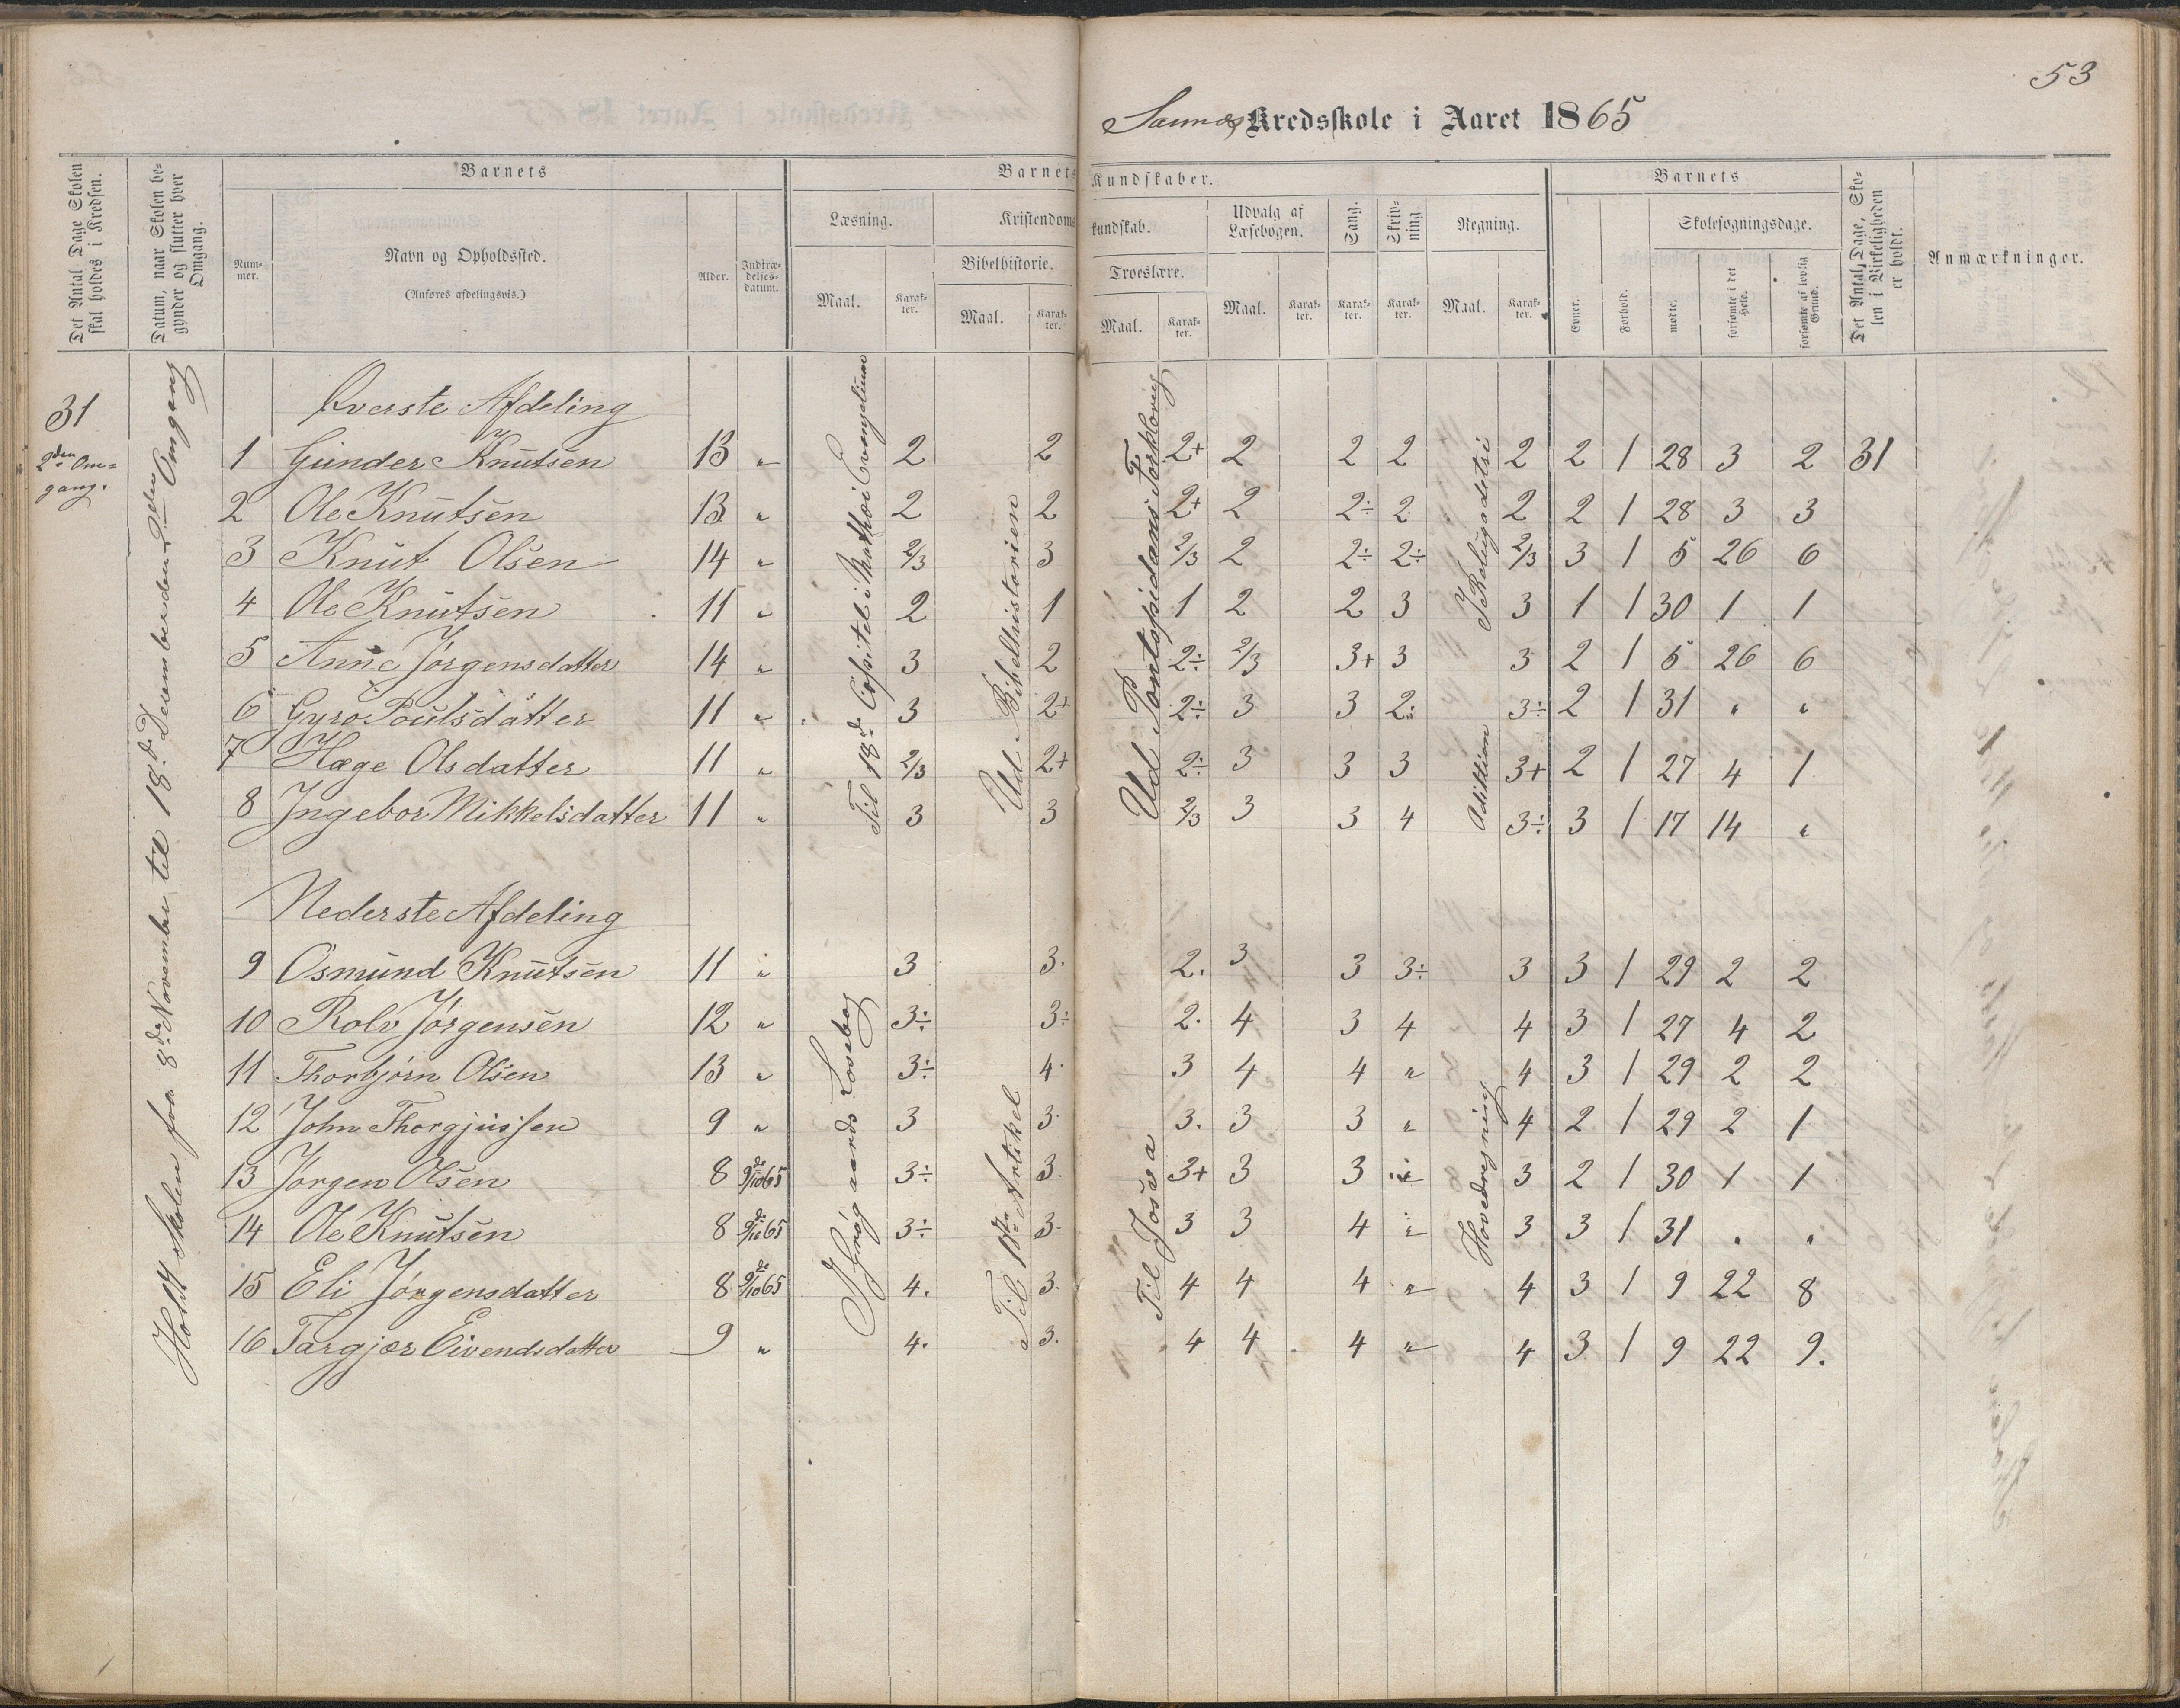 53
Kredsskole i Aaret 1865
Det Antal Dage Skolen skal holdes i Kredsen.
Datum, naar Skolen begynder og slutter hver Omgang.
Barnets
Nummer.
Navn og Opholdssted.
(Anføres afdelingsvis.)
Alder.
Indtrædelsesdatum.
Barnets Kundskaber.
Læsning.
Maal.
Karakter.
Kristendomskundskab.
Bibelhistorie.
Maal.
Karakter.
Troeslære.
Maal.
Karakter.
Udvalg af Læsebogen.
Maal.
Karakter.
Sang.
Karakter.
Skrivning.
Karakter.
Regning.
Maal.
Karakter.
Barnets
Evner.
Forhold.
Skolesøgningsdage.
mødte.
forsømte i det Hele.
forsømte af lovlig Grund.
Det Antal Dage, Skolen i Virkeligheden er holdt.
Anmærkninger.
31
2den Omgang.
Holdt Skolen fra 8de November til 18de December den 2den Omgang
Øverste Afdeling
Til 18de Capitel i Mathæi Evangelium
Ud Bibelhistorien
Ud Pontopidans Forklaring
I Reluguadetri
Adittion
1 Gunder Knutsen 13 " 2 2 2+ 2 2 2 2 2 1 28 3 2 31
2 Ole Knutsen 13 " 2 2 2+ 2 2÷ 2 2 2 1 28 3 3
3 Knut Olsen 14 " 2/3 3 2/3 2 2÷ 2÷ 2/3 3 1 5 26 6
4 Ole Knutsen 11 " 2 1 1 2 2 3 3 1 1 30 1 1
5 Anne Jørgensdatter 14 " 3 2 2÷ 2/3 3+ 3 3 2 1 5 26 6
6 Gyro Poulsdatter 11 " 3 2+ 2÷ 3 3 2÷ 3÷ 2 1 31 " "
7 Hæge Olsdatter 11 " 2/3 2+ 2÷ 3 3 3 3+ 2 1 27 4 1
8 Ingebor Mikkelsdatter 11 " 3 3 2/3 3 3 4 3÷ 3 1 17 14 "
Nederste Afdeling
Til 1ste Artikel
Til Josva
Hovedregning
9 Osmund Knutsen 11 " 3 3. 2. 3 3 3÷ 3 3 1 29 2 2
10 Rolv Jørgensen 12 " 3÷ 3÷ 2. 4 3 4 4 3 1 27 4 2
11 Thorbjørn Olsen 13 " 3÷ 4. 3 4 4 " 4 3 1 29 2 2
12 John Thorgjussen 9 " 3 3. 3. 3 3 " 4 2 1 29 2 1
13 Jørgen Olsen 8 9de/10 65 3÷ 3. 3+ 3 3 " 3 2 1 30 1 1
14 Ole Knutsen 8 9de/10 65 3÷ 3. 3 3 4 " 3 3 1 31 " "
15 Eli Jørgensdatter 8 9de/10 65 4. 3. 4 4 4 " 4 3 1 9 22 8
16 Targjær Eivendsdatter 9 " 4. 3. 4 4 4 " 4 3 1 9 22 9.